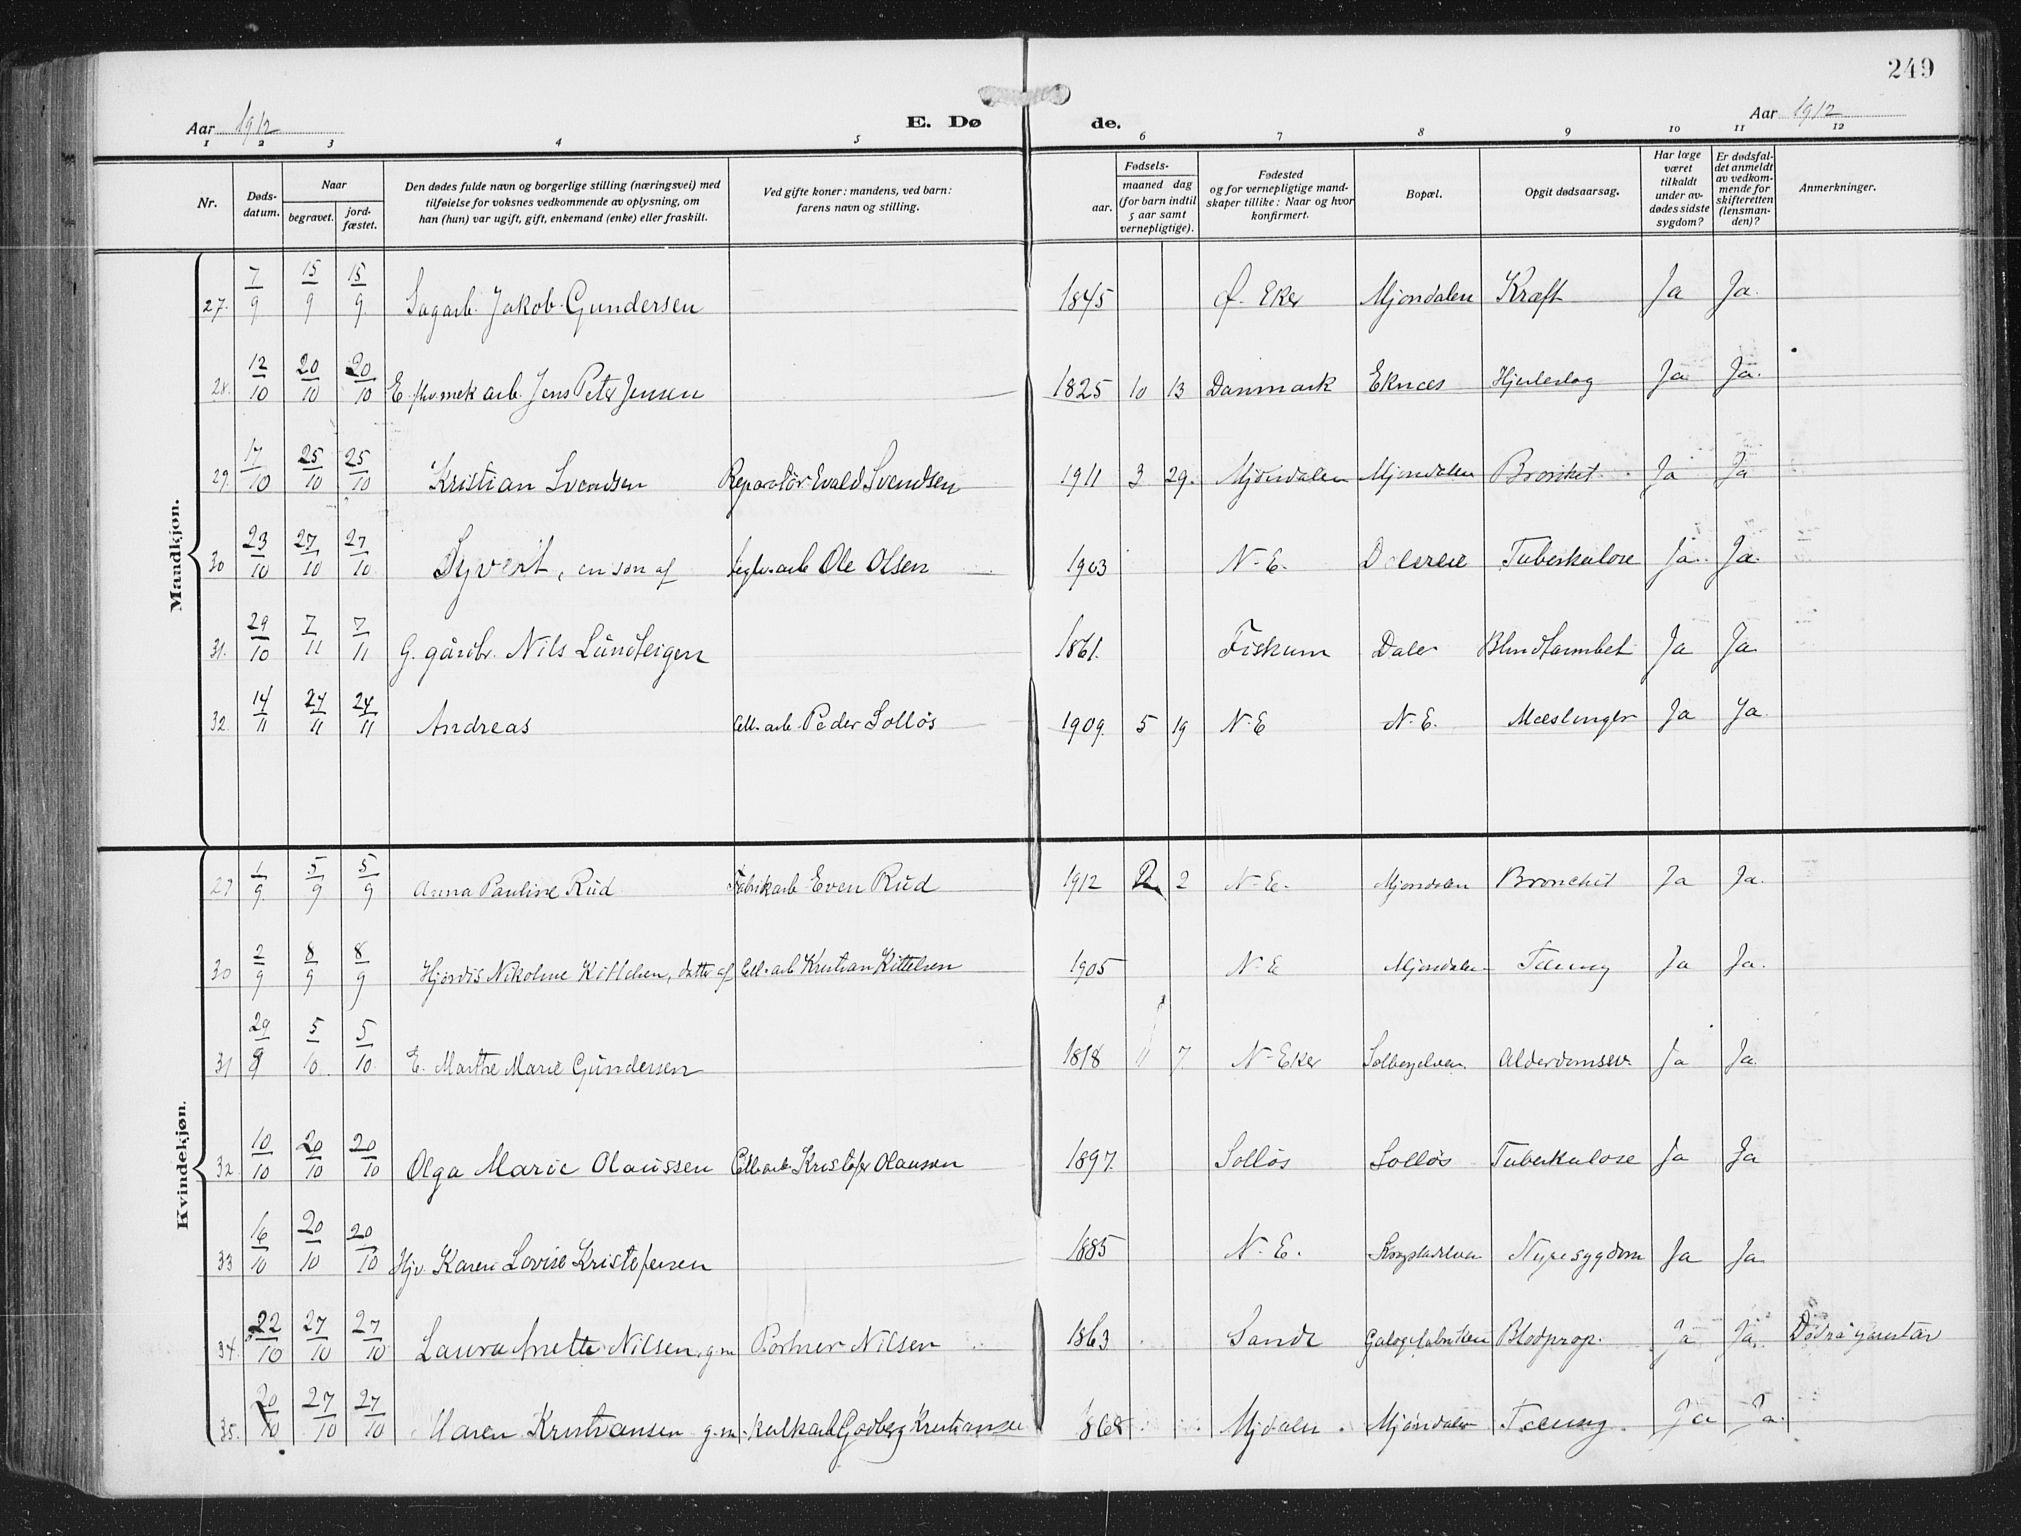 249
Aar 1912 E. Dø de. Aar 1912
1 2 3 4 5 6 7 8 9 10 11 12
Nr. Døds-datum. Naar begravet. jord-fæstet. Den dødes fulde navn og borgerlige stilling (næringsvei) med tilføielse for voksnes vedkommende av oplysning, om han (hun) var ugift, gift, enkemand (enke) eller fraskilt. Ved gifte koner: mandens, ved barn: farens navn og stilling. Fødsels- aar. maaned dag (for barn indtil 5 aar samt vernepligtige). Fødested og for vernepligtige mand-skaper tillike: Naar og hvor konfirmert. Bopæl. Opgit dødsaarsag. Har læge været tilkaldt under av-dødes sidste sygdom? Er dødsfal-det anmeldt av vedkom-mende for skifteretten (lensman-den)? Anmerkninger.
Mandkjøn.
27. 7/9 15/9 15/9 Sagarb. Jakob Gundersen 1845 Ø. Eker Mjøndalen Kræft Ja Ja.
28. 12/10 20/10 20/10 E. fhv. mek arb. Jens Peter Jensen 1825 10 13 Danmark Eknes Hjerteslag Ja Ja.
29. 17/10 25/10 25/10 Kristian Svendsen Reparatør Evald Svendsen 1911 3 29. Mjøndalen Mjøndalen Bronkit. Ja Ja
30 23/10 27/10 27/10 Syvert, en søn af teglv.arb Ole Olsen 1903 N-E. Tuberkulose Ja. Ja.
31. 29/10 7/11 7/11 G. gårdbr. Nils Lundteigen 1861. Fiskum Daler Blindtarmbet. Ja Ja
32. 14/11 24/11 24/11 Andreas Cell. arb. Peder Solløs 1909. 5 19 N-E N-E. Mæslinger Ja Ja.
Kvindekjøn.
29 1/9 5/9 5/9 Anna Pauline Rud Fabrikarb Even Rud 1912 2 2 N-E. Mjøndalen Bronchit Ja Ja.
30 2/9 8/9 8/9 Hjørdis Nikoline Kittelsen, datter af Cell. arb Kristian Kittelsen 1905 N-E Mjøndalen Tæring Ja Ja.
31 29/9 5/10 5/10. E. Marthe Marie Gundersen 1818 11 7. N-Eker Solbergelven. Alderdomssv. Ja Ja.
32. 10/10 20/10 20/10 Olga Marie Olaussen Cell arb Kristofer Olaussen 1897. Solløs Solløs Tuberkulose Ja Ja
33 16/10 20/10 20/10 Hjv. Karen Lovise Kristofersen 1885 N-E. Krogstadelven Nyresygdom Ja Ja
34. 22/10 27/10 27/10 Laura Anette Nilsen, g.m. Portner Nilsen 1863 Sande Blodprop. Ja Ja.
35. 20/10 27/10 27/10 Maren Kristiansen g.m. Kristiansen 1868 Mjdalen. Mjøndalen Tæring. Ja Ja.